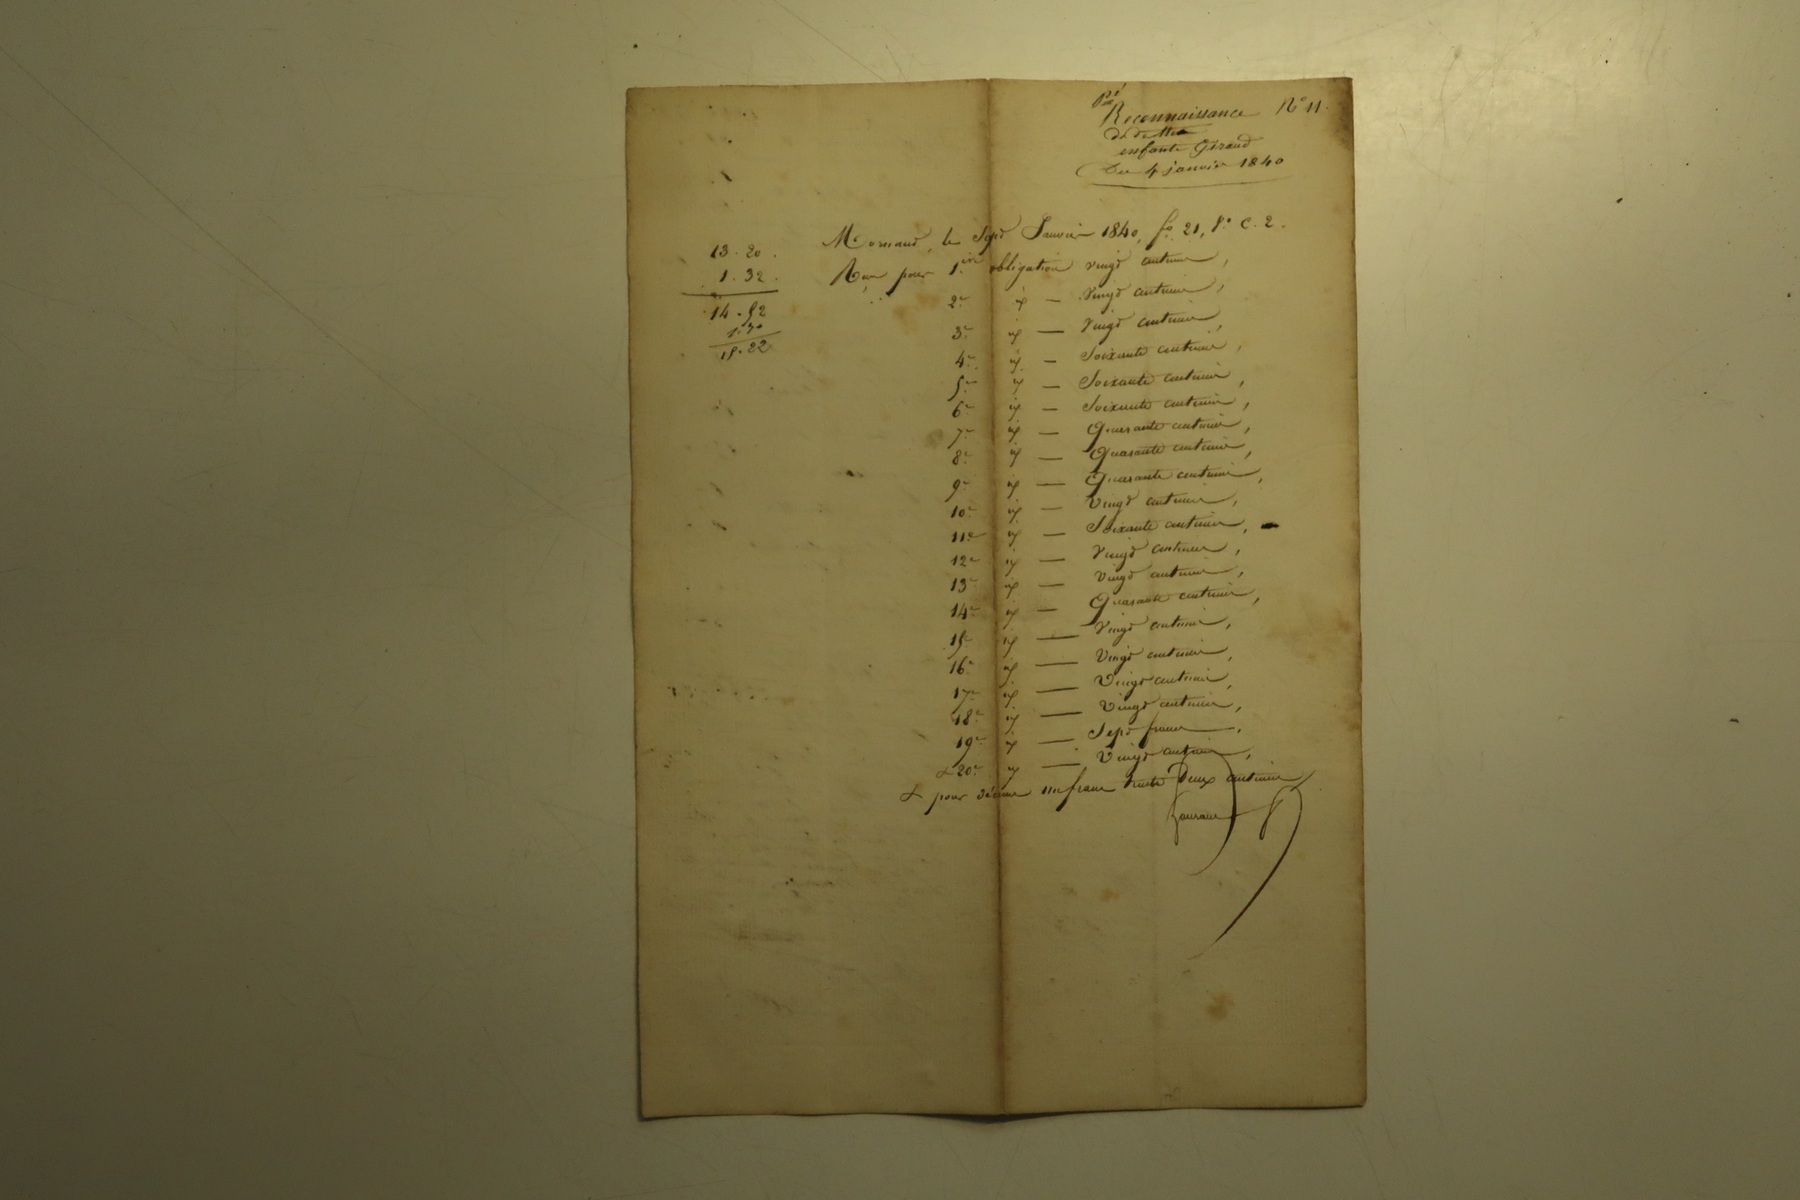 Reconnaissance N° 11.
de dette
enfants Giraud
Du 4 janvier 1840
Mornand, le Sept Janvier 1840, f° 21, r° C. 2.
13.20.
Reçu pour 1ère obligation vingt centimes,
1.32.
2e id — Vingt centimes,
14.52
3e id — Vingt centimes,
1.70
4e id — Soixante centimes,
15.22
5e id — Soixante centimes,
6e id — Soixante centimes,
7e id — Quarante centimes,
8e id — Quarante centimes,
9e id — Quarante centimes,
10e id — Vingt centimes,
11e id — Soixante centimes,
12e id — Vingt centimes,
13e id — Vingt centimes,
14e id — Quarante centimes,
15e id — Vingt centimes,
16e id — Vingt centimes,
17e id — Vingt centimes,
18e id — Vingt centimes,
19e id — Sept francs,
& 20e id — Vingt centimes,
& pour décime un franc trente deux centimes